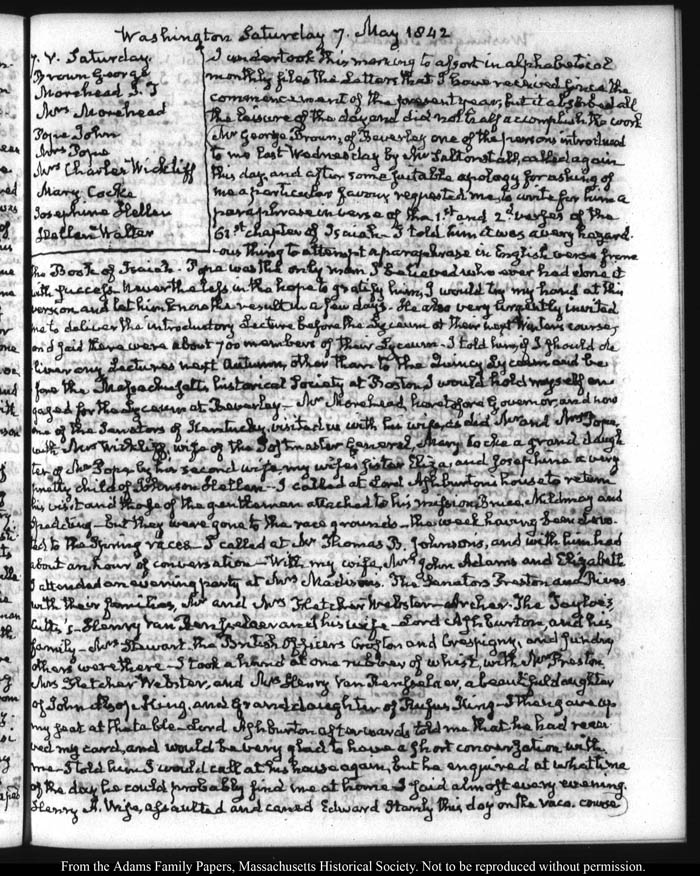 Washington Saturday 7. May 1842
7. V. Saturday
Brown George
Morehead J. T
Mrs Morehead
Pope John
Mrs Pope
Mrs Charles Wickliff
Mary Cocke
Josephine Hellen
Hellen Walter
I undertook this morning to assort in alphabetical
monthly files the Letters that I have received since the
commencement of the present year, but it absorbed all
the leisure of the day and did not half accomplish the work
Mr George Brown, of Beverley one of the persons introduced
to me last Wednesday by Mr Saltonstall, called again
this day, and after some suitable apology for asking of
me a particular favour requested me, to write for him a
paraphrase in verse of the 1st and 2d verses of the
61st chapter of Isaiah. I told him it was a very hazard-
ous thing to attempt a paraphrase in English verse from
the Book of Isaiah. Pope was the only man I believed who ever had done it
with success. Nevertheless in the hope to gratify him, I would try my hand at this
version and let him know the result in a few days. He also very urgently invited
me to deliver the introductory Lecture before the Lyceum at their next Winter's course,
and said there were about 700 members of their Lyceum. I told him, if I should de
liver any Lectures next Autumn, other than to the Quincy Lyceum and be
fore the Massachusetts historical Society at Boston, I would hold myself en
gaged for the Lyceum at Beverley. Mr Morehead, heretofore Governor, and now
one of the Senators of Kentucky, visited us with his wife, as did Mr and Mrs Pope,
with Mrs Wickliff, wife of the Postmaster General, Mary Cocke a grand daugh
ter of Mr Pope by his second wife, my wife's sister Eliza, and Josephine a very
pretty child of Johnson Hellen. I called at Lord Ashburton's house to return
his visit and those of the gentlemen attached to his mission Bruce, Mildmay and
Stedding but they were gone to the race grounds the week having been devo
ted to the Spring races I called at Mr Thomas B. Johnson's, and with him had
about an hour of conversation With my wife, Mrs John Adams and Elizabeth
I attended an evening party at Mrs Madison's. The Senators Preston and Rives
with their families, Mr and Mrs Fletcher Webster Archer. The Tayloe's
Cutts's Henry Van Rensselaer and his wife Lord Ashburton, and his
family Mrs Stewart, the British Officers Crofton and Crespigny, and sundry
others were there I took a hand at one rubber of whist, with Mr Preston,
Mrs Fletcher Webster, and Mrs Henry Van Rensselaer, a beautiful daughter
of John Alsop King, and Grand daughter of Rufus King I then gave up
my seat at the table Lord Ashburton afterwards told me that he had recei
ved my card, and would be very glad to have a short conversation with
me I told him I would call at his house again, but he enquired at what time
of the day he could probably find me at home I said almost every evening.
Henry A. Wise, assaulted and caned Edward Stanly this day on the race course
From the Adams Family Papers, Massachusetts Historical Society. Not to be reproduced without permission.